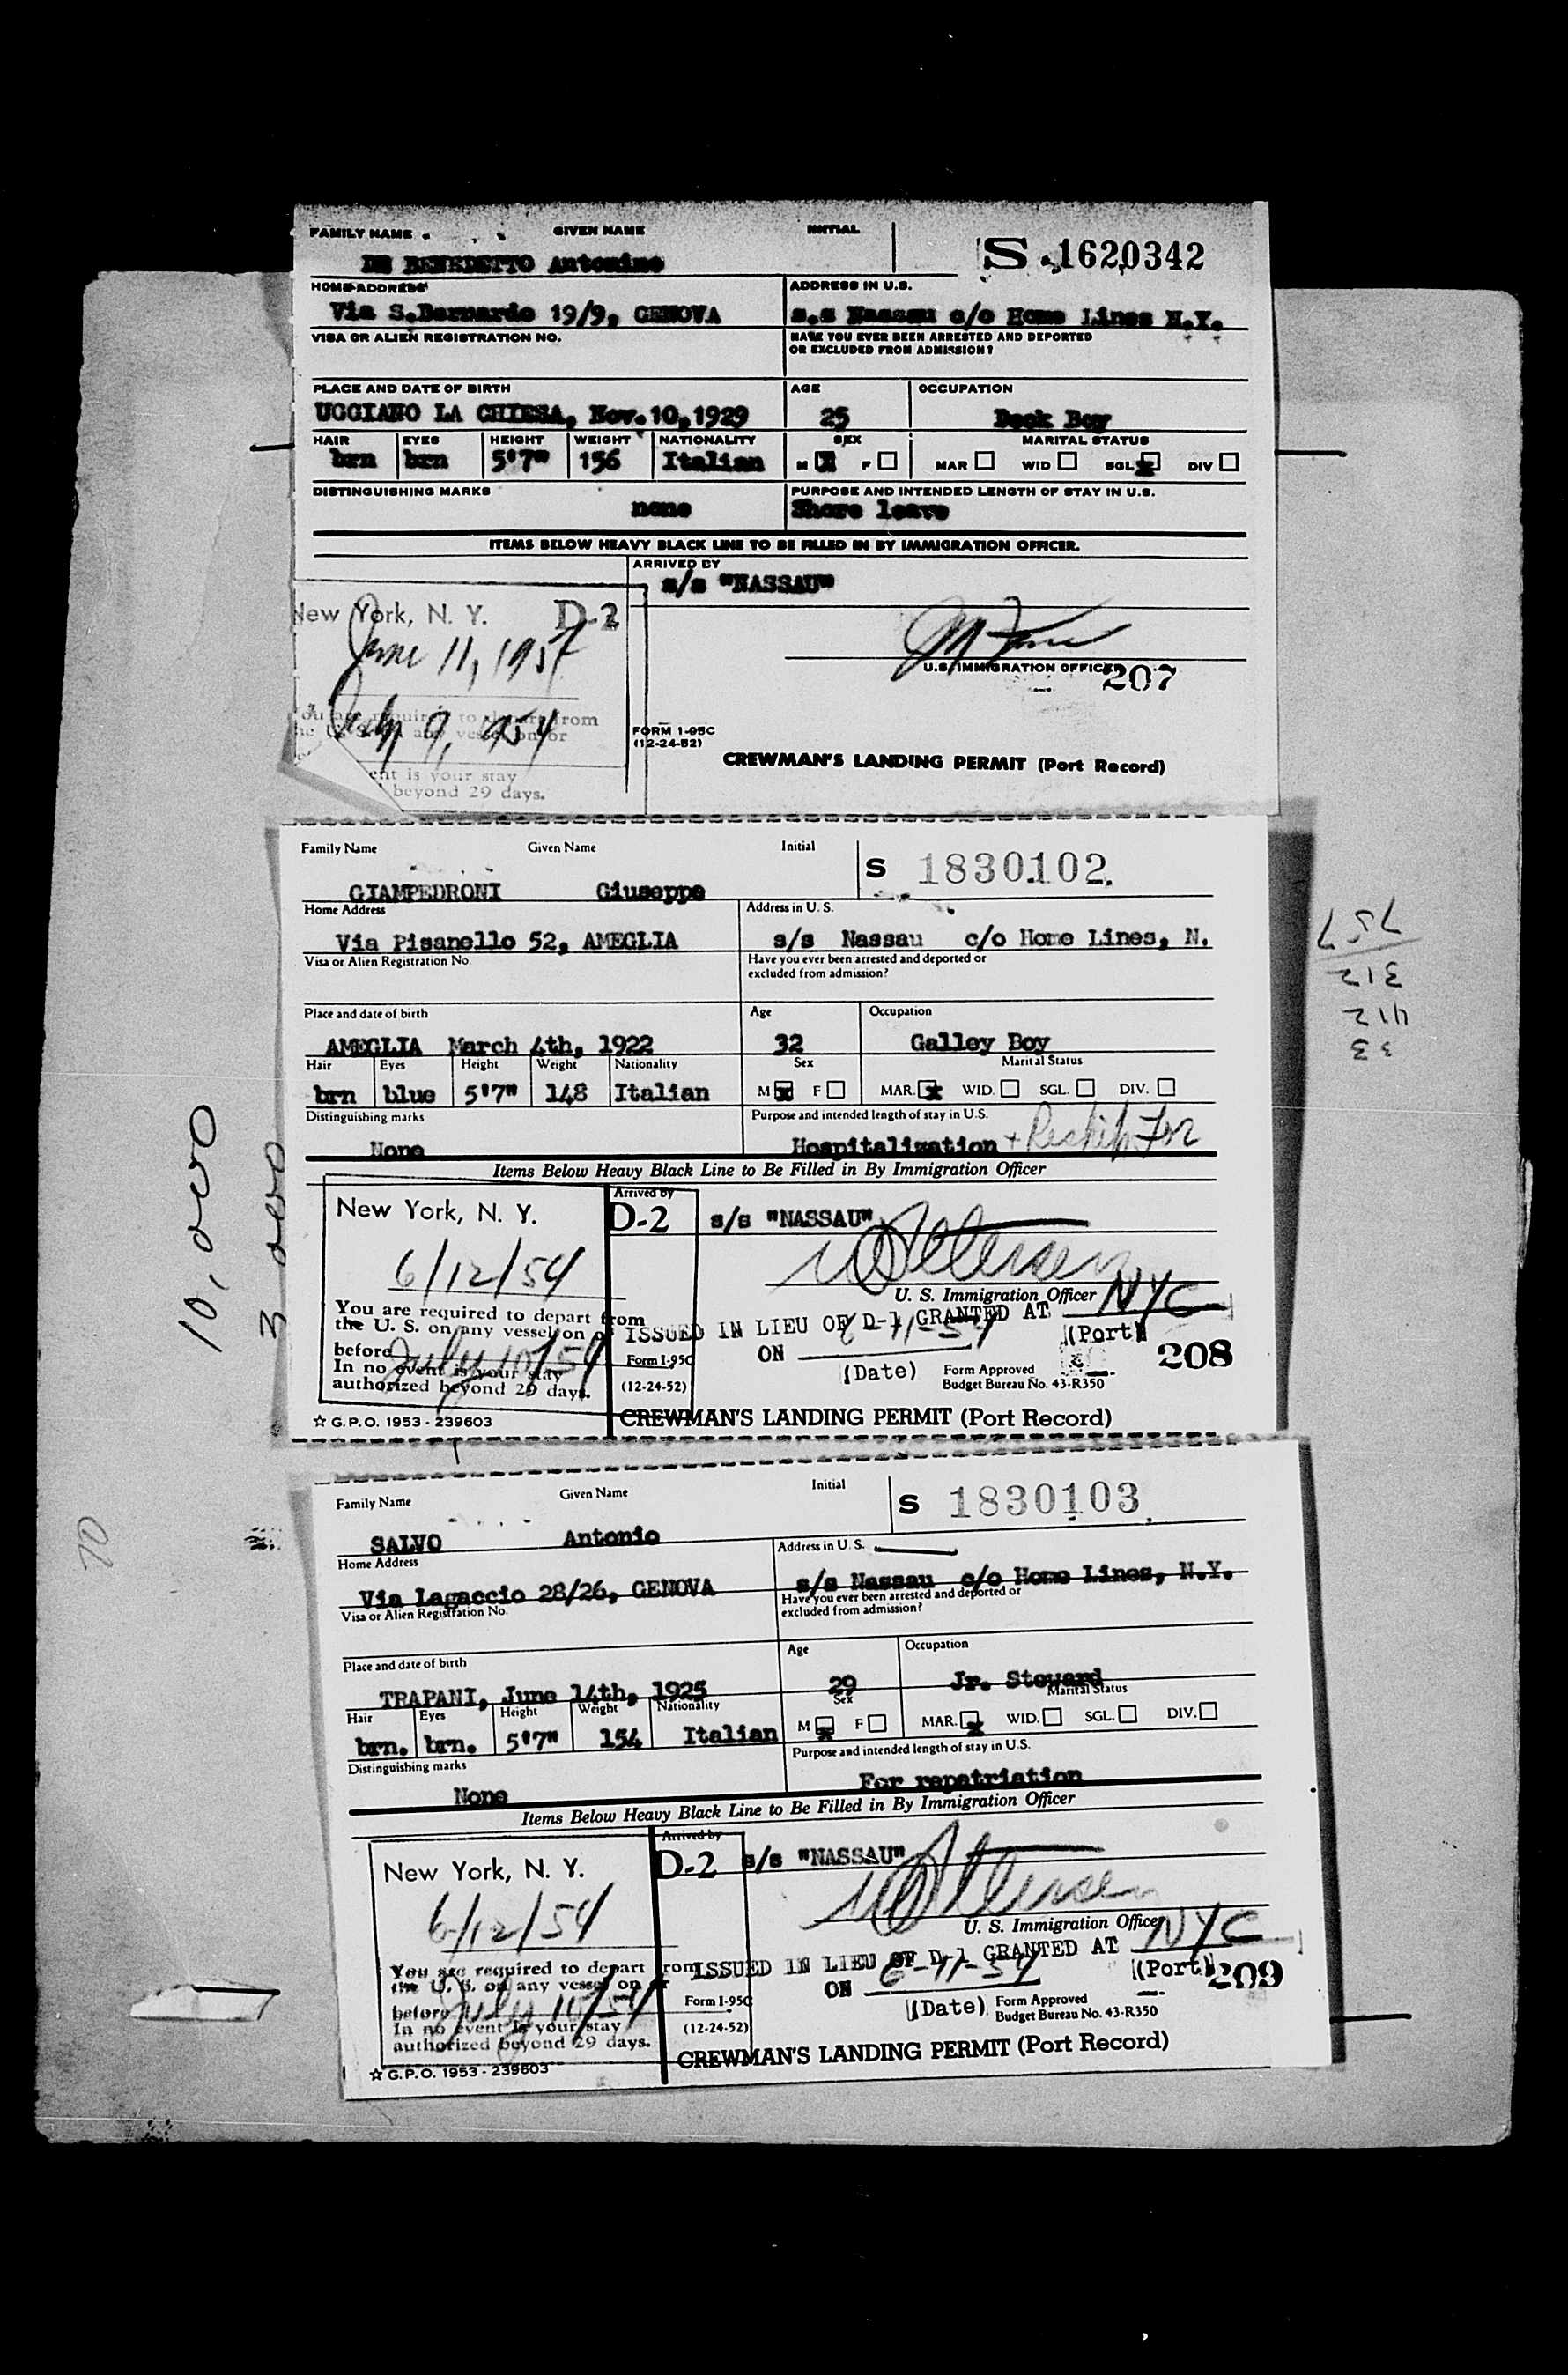 FAMILY NAME GIVEN NAME INITIAL
S 1620342
DE BENEDETTO Antonino
HOME ADDRESS ADDRESS IN U.S.
Via S.Bernardo 19/9, GENOVA s.s Nassau c/o Home Lines N.Y.
VISA OR ALIEN REGISTRATION NO. HAVE YOU EVER BEEN ARRESTED AND DEPORTED
OR EXCLUDED FROM ADMISSION?
PLACE AND DATE OF BIRTH AGE OCCUPATION
UGGIANO LA CHIESA, Nov.10,1929 25 Deck Boy
HAIR EYES HEIGHT WEIGHT NATIONALITY SEX MARITAL STATUS
brn brn 5'7" 156 Italian M X F MAR WID SGL X DIV
DISTINGUISHING MARKS PURPOSE AND INTENDED LENGTH OF STAY IN U.S.
none Shore leave
ITEMS BELOW HEAVY BLACK LINE TO BE FILLED IN BY IMMIGRATION OFFICER.
ARRIVED BY
s/s "NASSAU"
New York, N. Y. D-2
June 11, 1954
U.S. IMMIGRATION OFFICER
207
July 9, 1954
FORM 1-95C
(12-24-52)
CREWMAN'S LANDING PERMIT (Port Record)
ent is your stay
beyond 29 days.
Family Name Given Name Initial
S 1830102
GIAMPEDRONI Giuseppe
Home Address Address in U. S.
Via Pisanello 52, AMEGLIA s/s Nassau c/o Home Lines, N.
Visa or Alien Registration No. Have you ever been arrested and deported or
excluded from admission?
Place and date of birth Age Occupation
AMEGLIA March 4th, 1922 32 Galley Boy
Hair Eyes Height Weight Nationality Sex Marital Status
brn blue 5'7" 148 Italian M X F MAR. X WID. SGL. DIV.
Distinguishing marks Purpose and intended length of stay in U.S.
None Hospitalization + Reship For
Items Below Heavy Black Line to Be Filled in By Immigration Officer
Arrived by
New York, N. Y. D-2 s/s "NASSAU"
6/12/54
U. S. Immigration Officer
You are required to depart from
the U. S. on any vessel on or
before July 10/54
In no event is your stay
authorized beyond 29 days.
ISSUED IN LIEU OF D-1 GRANTED AT NYC
(Port)
ON 6-11-54
(Date)
208
Form I-95C
(12-24-52)
Form Approved
Budget Bureau No. 43-R350
☆ G.P.O. 1953 - 239603
CREWMAN'S LANDING PERMIT (Port Record)
Family Name Given Name Initial
S 1830103
SALVO Antonio
Home Address Address in U. S.
Via Lagaccio 28/26, GENOVA s/s Nassau c/o Home Lines, N.Y.
Visa or Alien Registration No. Have you ever been arrested and deported or
excluded from admission?
Place and date of birth Age Occupation
TRAPANI, June 14th, 1925 29 Jr. Steward
Hair Eyes Height Weight Nationality Sex Marital Status
brn. brn. 5'7" 154 Italian M X F MAR. X WID. SGL. DIV.
Distinguishing marks Purpose and intended length of stay in U.S.
None For repatriation
Items Below Heavy Black Line to Be Filled in By Immigration Officer
Arrived by
New York, N. Y. D-2 s/s "NASSAU"
6/12/54
U. S. Immigration Officer
You are required to depart from
the U. S. on any vessel on or
before July 10/54
In no event is your stay
authorized beyond 29 days.
ISSUED IN LIEU OF D-1 GRANTED AT NYC
(Port)
ON 6-11-54
(Date)
209
Form I-95C
(12-24-52)
Form Approved
Budget Bureau No. 43-R350
☆ G.P.O. 1953 - 239603
CREWMAN'S LANDING PERMIT (Port Record)
33
412
312
757
10